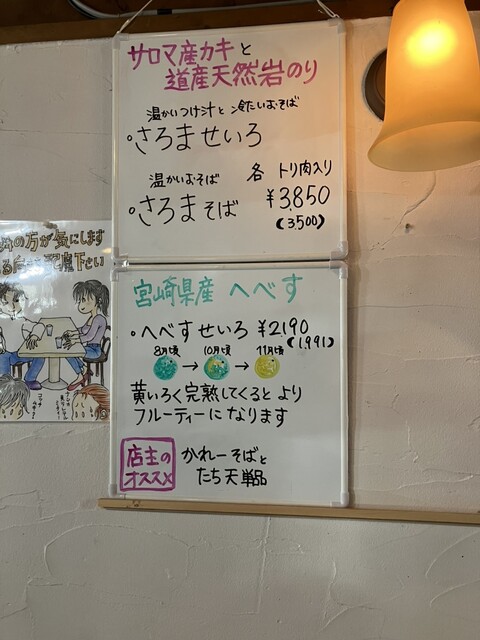 サロマ産カキと
道産天然岩のり
温かいつけ汁と冷たいおそば
・さろませいろ
温かいおそば 各 トリ肉入り
・さろまそば ¥3,850
(3,500)
宮崎県産 へべす
・へべすせいろ ¥2190
(1,991)
8月頃 → 10月頃 → 11月頃
黄いろく完熟してくると より
フルーティーに なります
店主の
オススメ
かれーそばと
たち天単品
の方が気にします
下さい